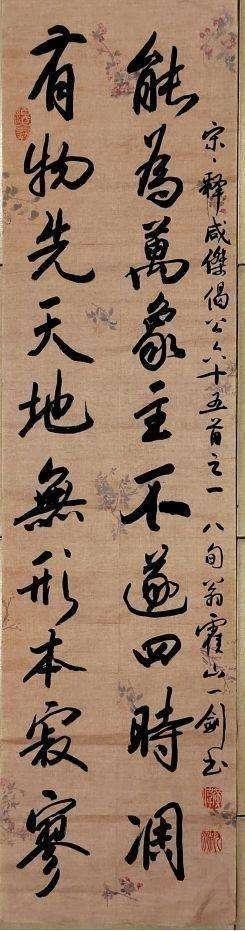 有物先天地無形本寂寥
能為萬象主不遂四時凋
宋、釋咸傑偈公六十五首之一八旬翁霍山一劍书